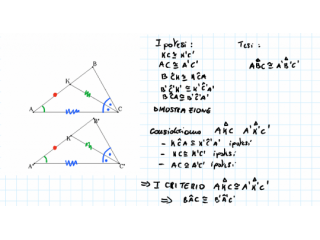 B
K
A
C
B'
K'
A'
C'
Ipotesi: Tesi:
KC ≅ K'C'
AC ≅ A'C' AB̂C ≅ A'B̂'C'
BĈK ≅ KĈA
B'Ĉ'K' ≅ K'Ĉ'A'
BĈA ≅ B'Ĉ'A'
DIMOSTRAZIONE
Consideriamo AKC A'K'C'
- KĈA ≅ K'Ĉ'A' ipotesi
- KC ≅ K'C' ipotesi
- AC ≅ A'C' ipotesi
⇒ I CRITERIO AKC ≅ A'K'C'
⇒ BÂC ≅ B'Â'C'